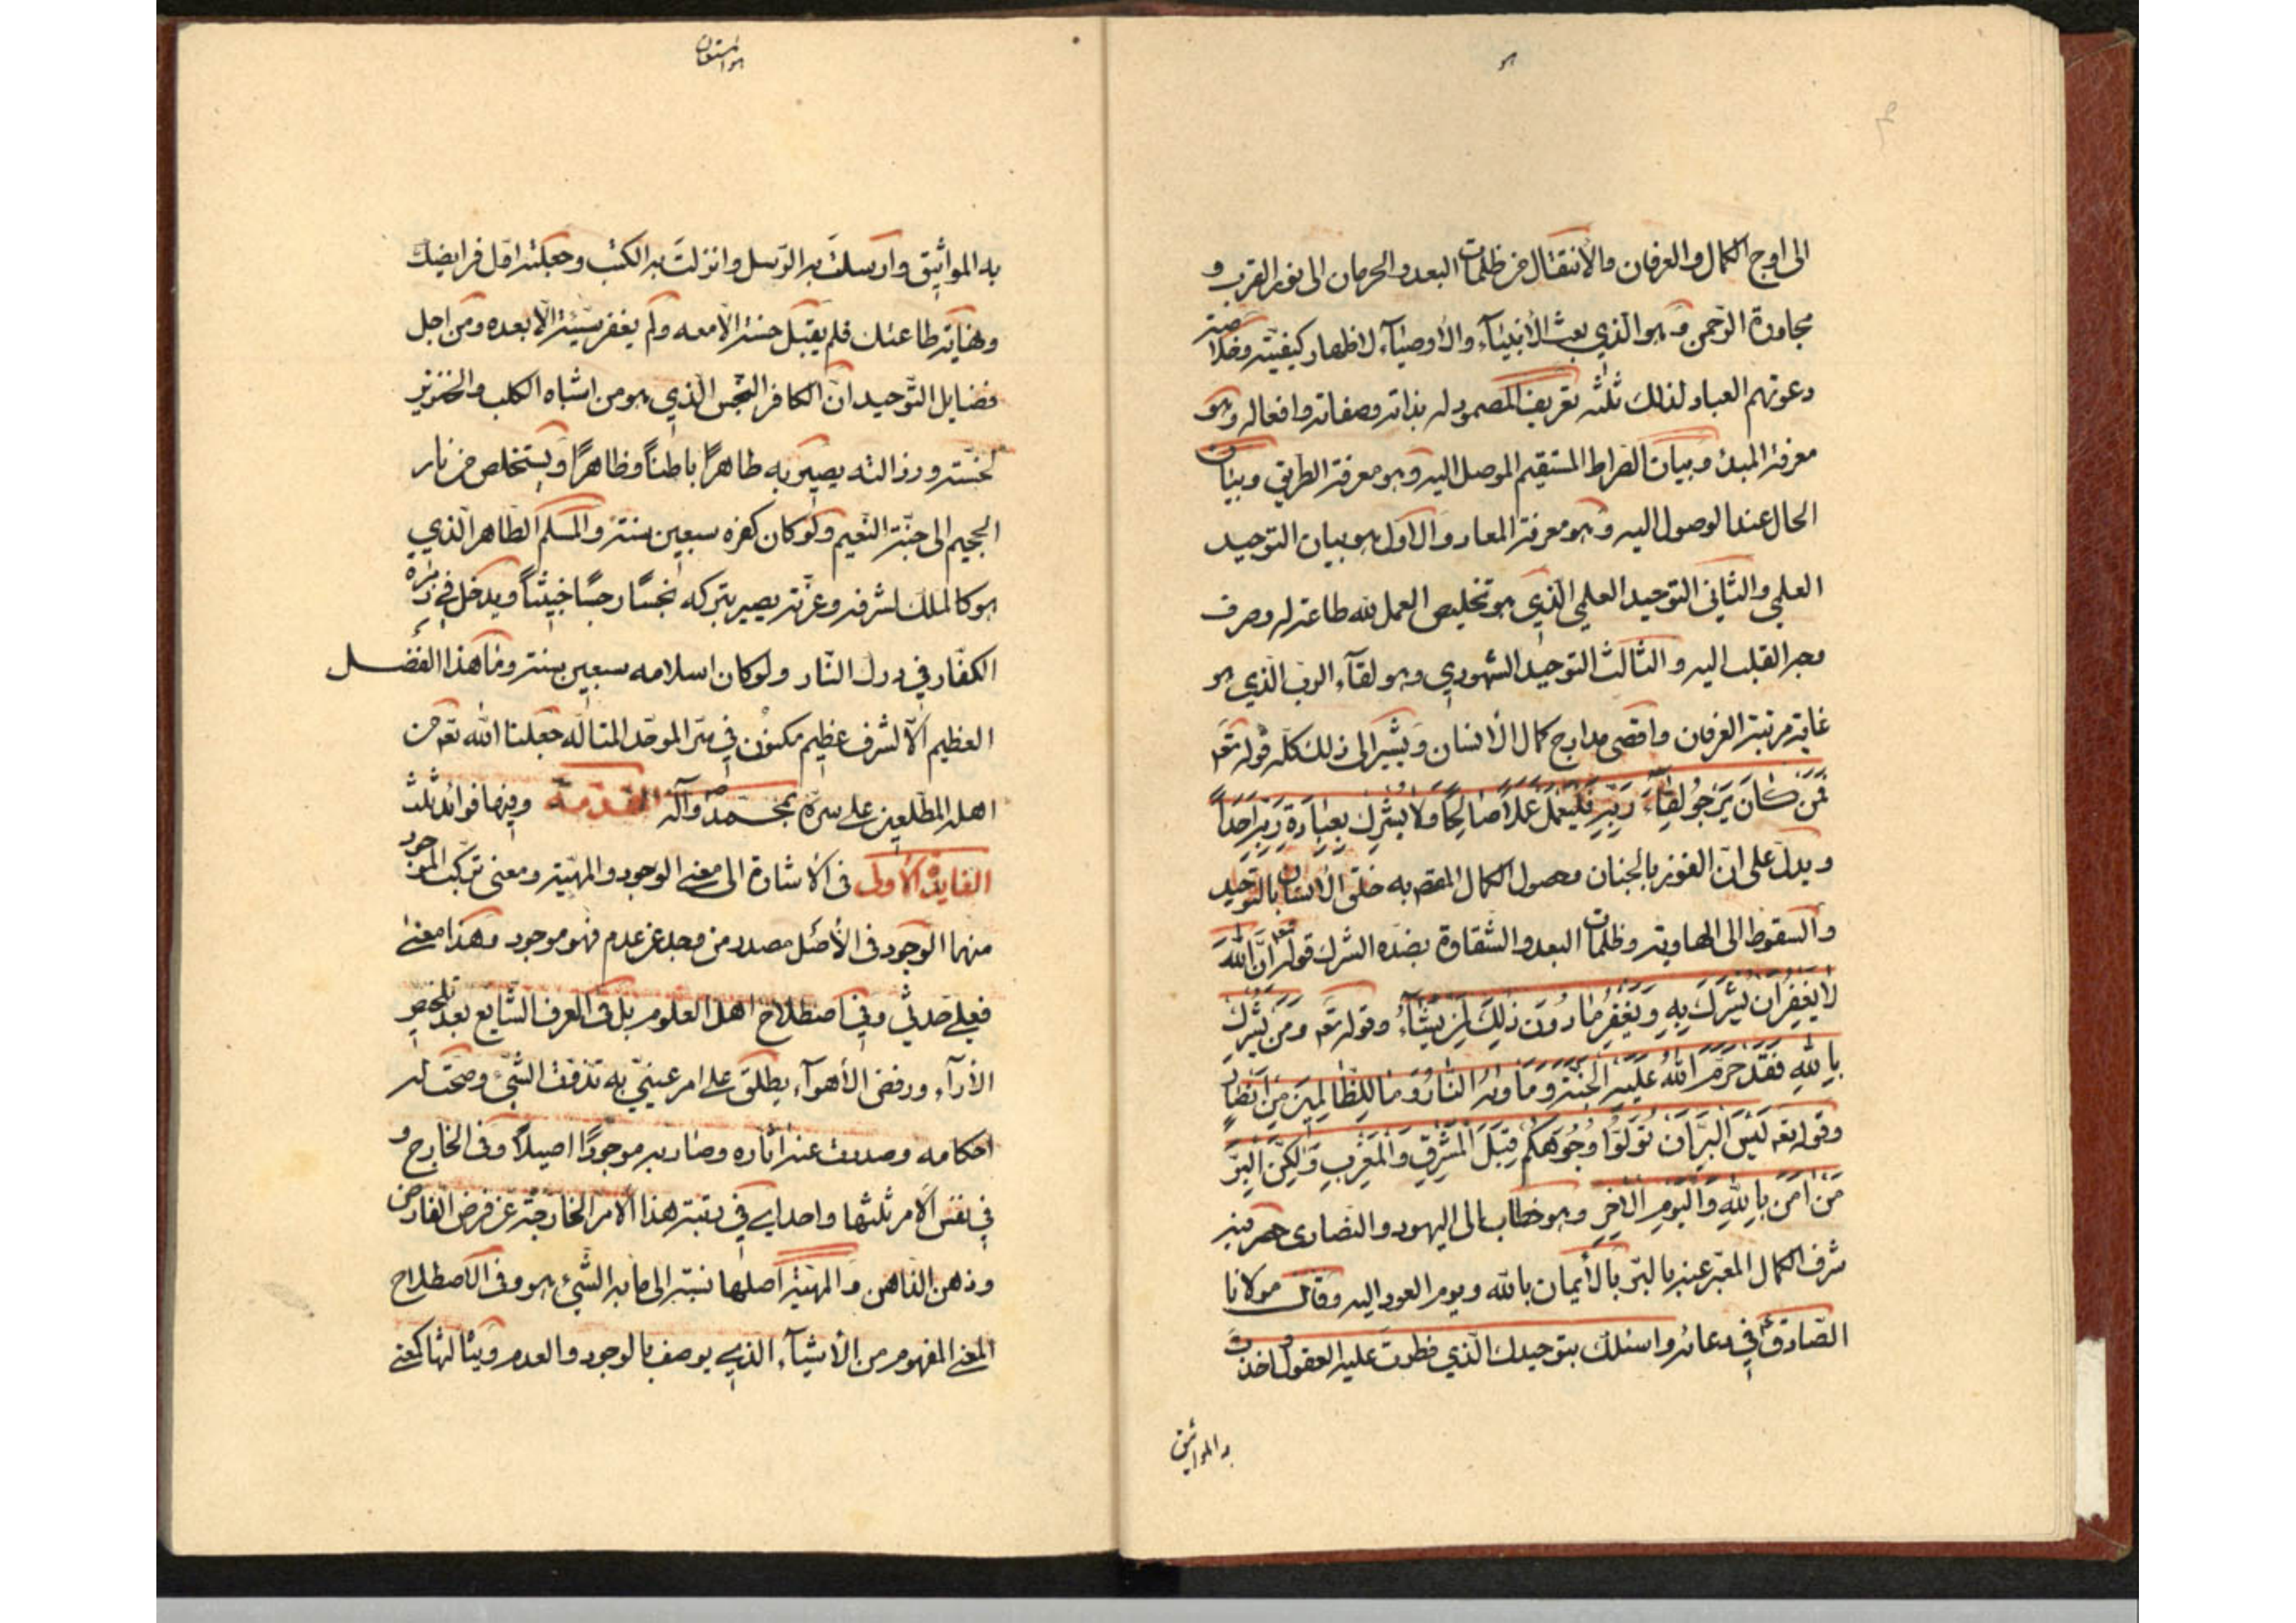 هو
الى اوج الكمال والعرفان والأنتقال من ظلمات البعد والحرمان الى نور القرب و
مجاورة الرّحمن وهو الّذي بعث الأنبيآء والأوصيآء لاظهار كيفيّته وخلاصة
دعوتهم العباد لذلك ثلثه تعريف المصمود له بذاته وصفاته وافعاله وهو
معرفة المبدء وبيان الصّراط المستقيم الموصل اليه وهو معرفة الطريق وبيان
الحال عند الوصول اليه وهو معرفة المعاد والأول هو بيان التوحيد
العلمي والثّاني التوحيد العملي الّذي هو تخليص العمل لله طاعة له وصرف
وجه القلب اليه والثالث التوحيد الشهودي وهو لقآء الرب الّذي هو
غاية مرتبة العرفان واقصى مدارج كمال الأنسان ويشير الى ذلك كلّه قوله تعه
فَمَن كانَ يَرجُو لِقآءَ رَبِّهِ فَليَعمَل عَمَلاً صالِحًا وَلا يُشرِك بِعِبادَةِ رَبِّهِ اَحَداً
ويدلّ على انّ الفوز بالجنان وحصول الكمال المقصد به خلق الأنسان بالتوحيد
والسقوط الى الهاوية وظلمات البعد والشقاوة بضدّه الشرك قوله تعه اِنَّ اللهَ
لا يَغفِرُ اَن يُشرَكَ بِهِ وَيَغفِرُ ما دُونَ ذلِكَ لِمَن يَشآءُ وقوله تعه وَمَن يُشرِك
بِاللهِ فَقَد حَرَّمَ اللهُ عَلَيهِ الجَنَّةَ وَمَأويهُ النّارُ وَما لِلظّالِمينَ مِن اَنصارٍ
وقوله تعه لَيسَ البِرَّ اَن تُوَلّوا وُجُوهَكُم قِبَلَ المَشرِقِ وَالمَغرِبِ وَلكِنَّ البِرَّ
مَن آمَنَ بِاللهِ وَاليَومِ الآخِرِ وهو خطاب الى اليهود والنصارى حصر فيه
شرف الكمال المعبّر عنه بالبّر بالأيمان بالله ويوم العود اليه وقال مولانا
الصّادق ع في دعائه واسئلك بتوحيدك الّذي فطرت عليه العقول واخذت
به المواثيق
هو المستعان
به المواثيق وارسلت به الرّسل وانزلت به الكتب وجعلته اوّل فرايضك
ونهاية طاعتك فلم يقبل حسنة الاّ معه ولم يغفر سيّئة الاّ بعده ومن اجل
فضايل التّوحيد انّ الكافر النّجس الّذي هو من اشباه الكلب والخنزير
لخسّته ورذالته يصير به طاهرًا باطناً وظاهرًا ويستخلص من نار
الجحيم الى جنّة النّعيم ولو كان كفره سبعين سنة والمسلم الطّاهر الّذي
هو كالملك لشرفه وعزّته يصير بتركه نجسًا رجسًا خبيثاً ويدخل في زمرة
الكفّار في درك النّار ولو كان اسلامه سبعين سنة وما هذا الفضل
العظيم الاّ لشرف عظيم مكنون في سّر الموحّد المتالّه جعلنا الله تعه من
اهله المطّلعين على سرّه بمحمّد ص وآله المقدّمة وفيها فوائد ثلث
الفايدة الأولى في الأشارة الى معنى الوجود والمهيّة ومعنى تركّب الموجود
منهما الوجود في الأصل مصدر من وجد عن عدم فهو موجود وهذا معنى
فعلي حدثي وفي اصطلاح اهل العلوم بل في العرف الشّايع بعد تلخيص
الأرآء ورفض الأهوآء يطلق على امر عينيّ به تذوّت الشّيء وصحّت له
احكامه وصدرت عنه اثاره وصار به موجودًا اصيلاً وفي الخارج و
في نفس الأمر ثلثتها واحد اي في رتبة هذا الأمر الخارجة عن فرض الفارض
وذهن الذاهن والمهيّة اصلها نسبة الى ما به الشّيء هو وفي الأصطلاح
المعنى المفهوم من الأشيآء الذي يوصف بالوجود والعدم ويثالثها كمعنى